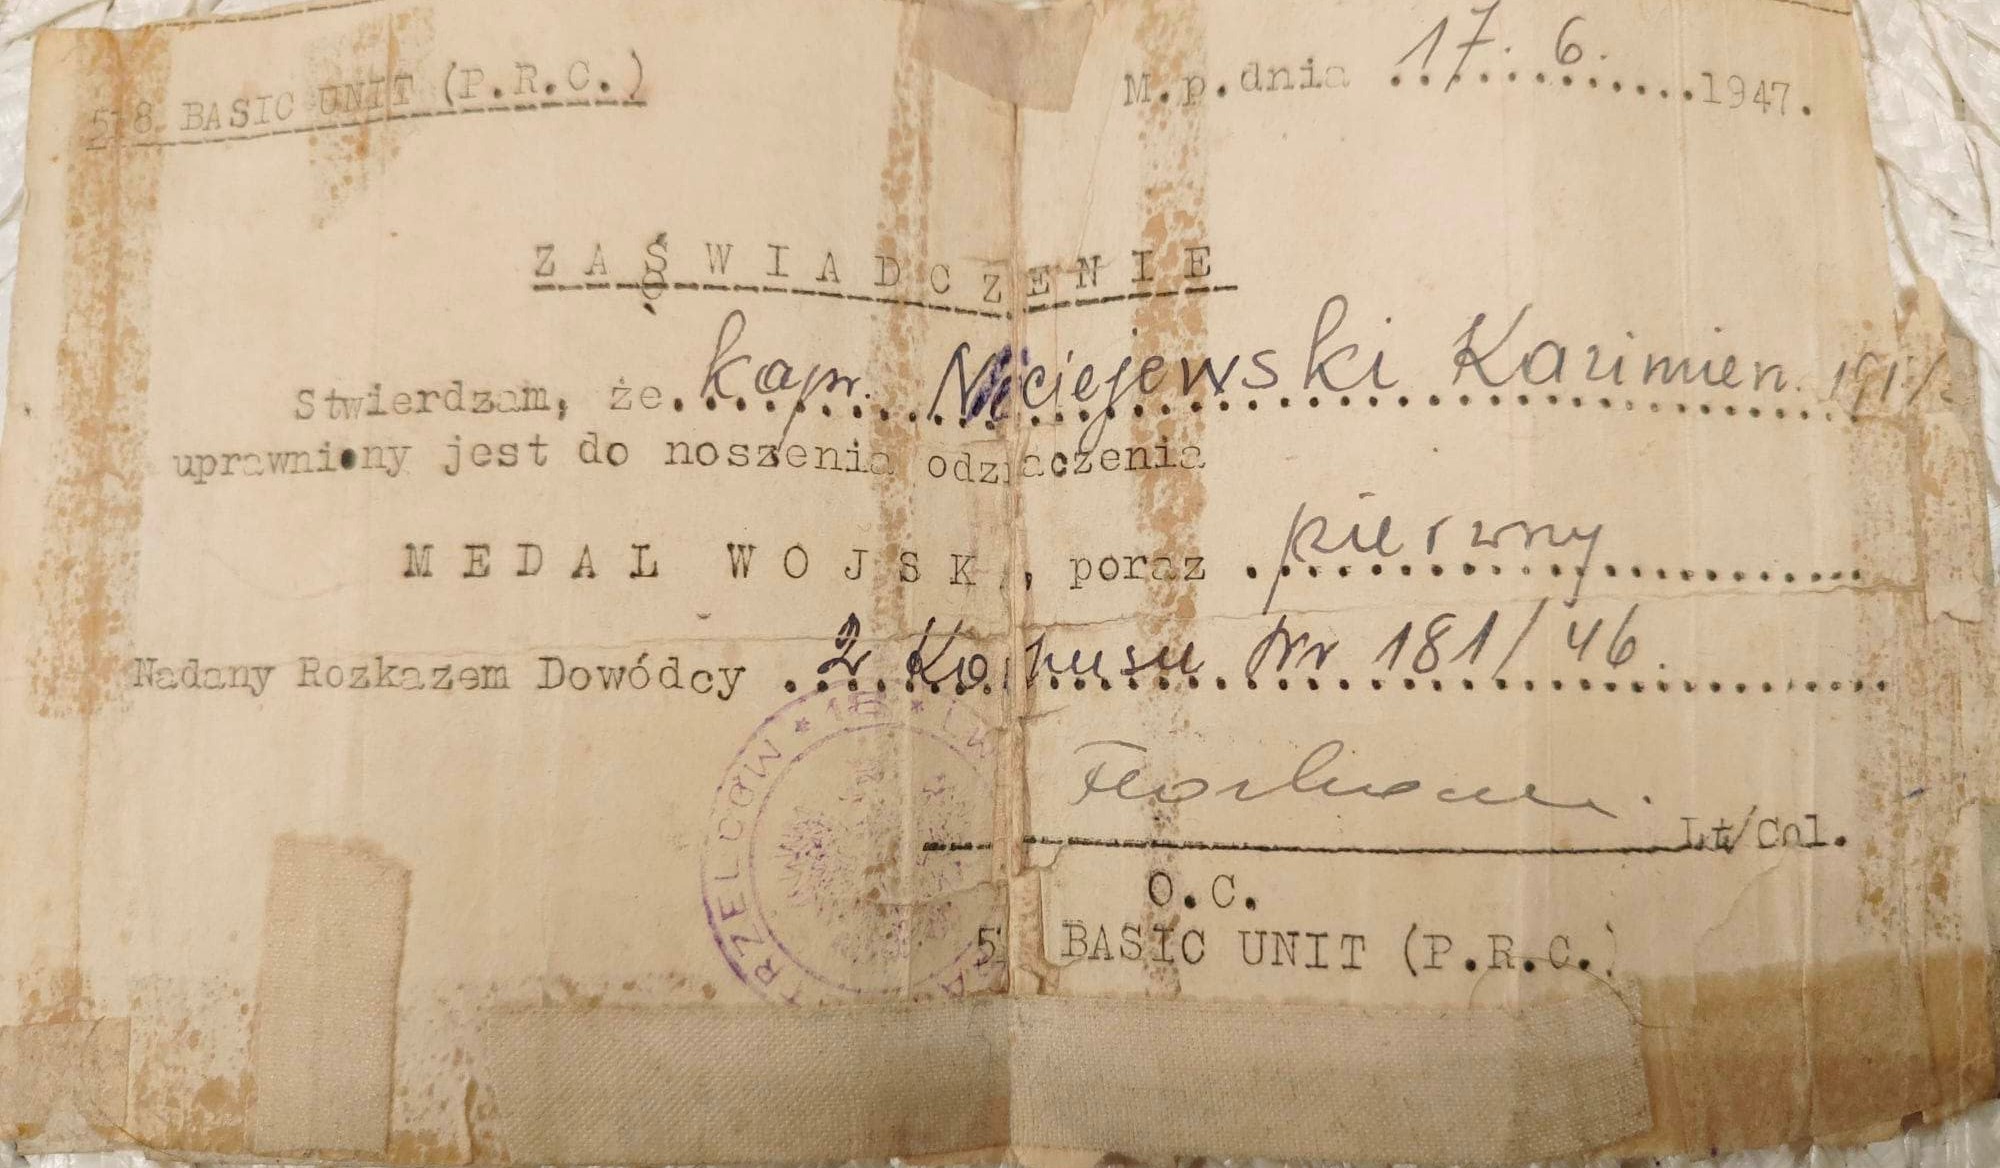 518 BASIC UNIT (P.R.C.)
M.p.dnia 17. 6. 1947.
ZAŚWIADCZENIE
Stwierdzam, że kapr. Niciejewski Kazimierz.
uprawniony jest do noszenia odznaczenia
MEDAL WOJSK, poraz pierwny
Nadany Rozkazem Dowódcy 2 Korpusu Nr 181/46.
Lt/Col.
O.C.
5 BASIC UNIT (P.R.C.)
RZELCÓW